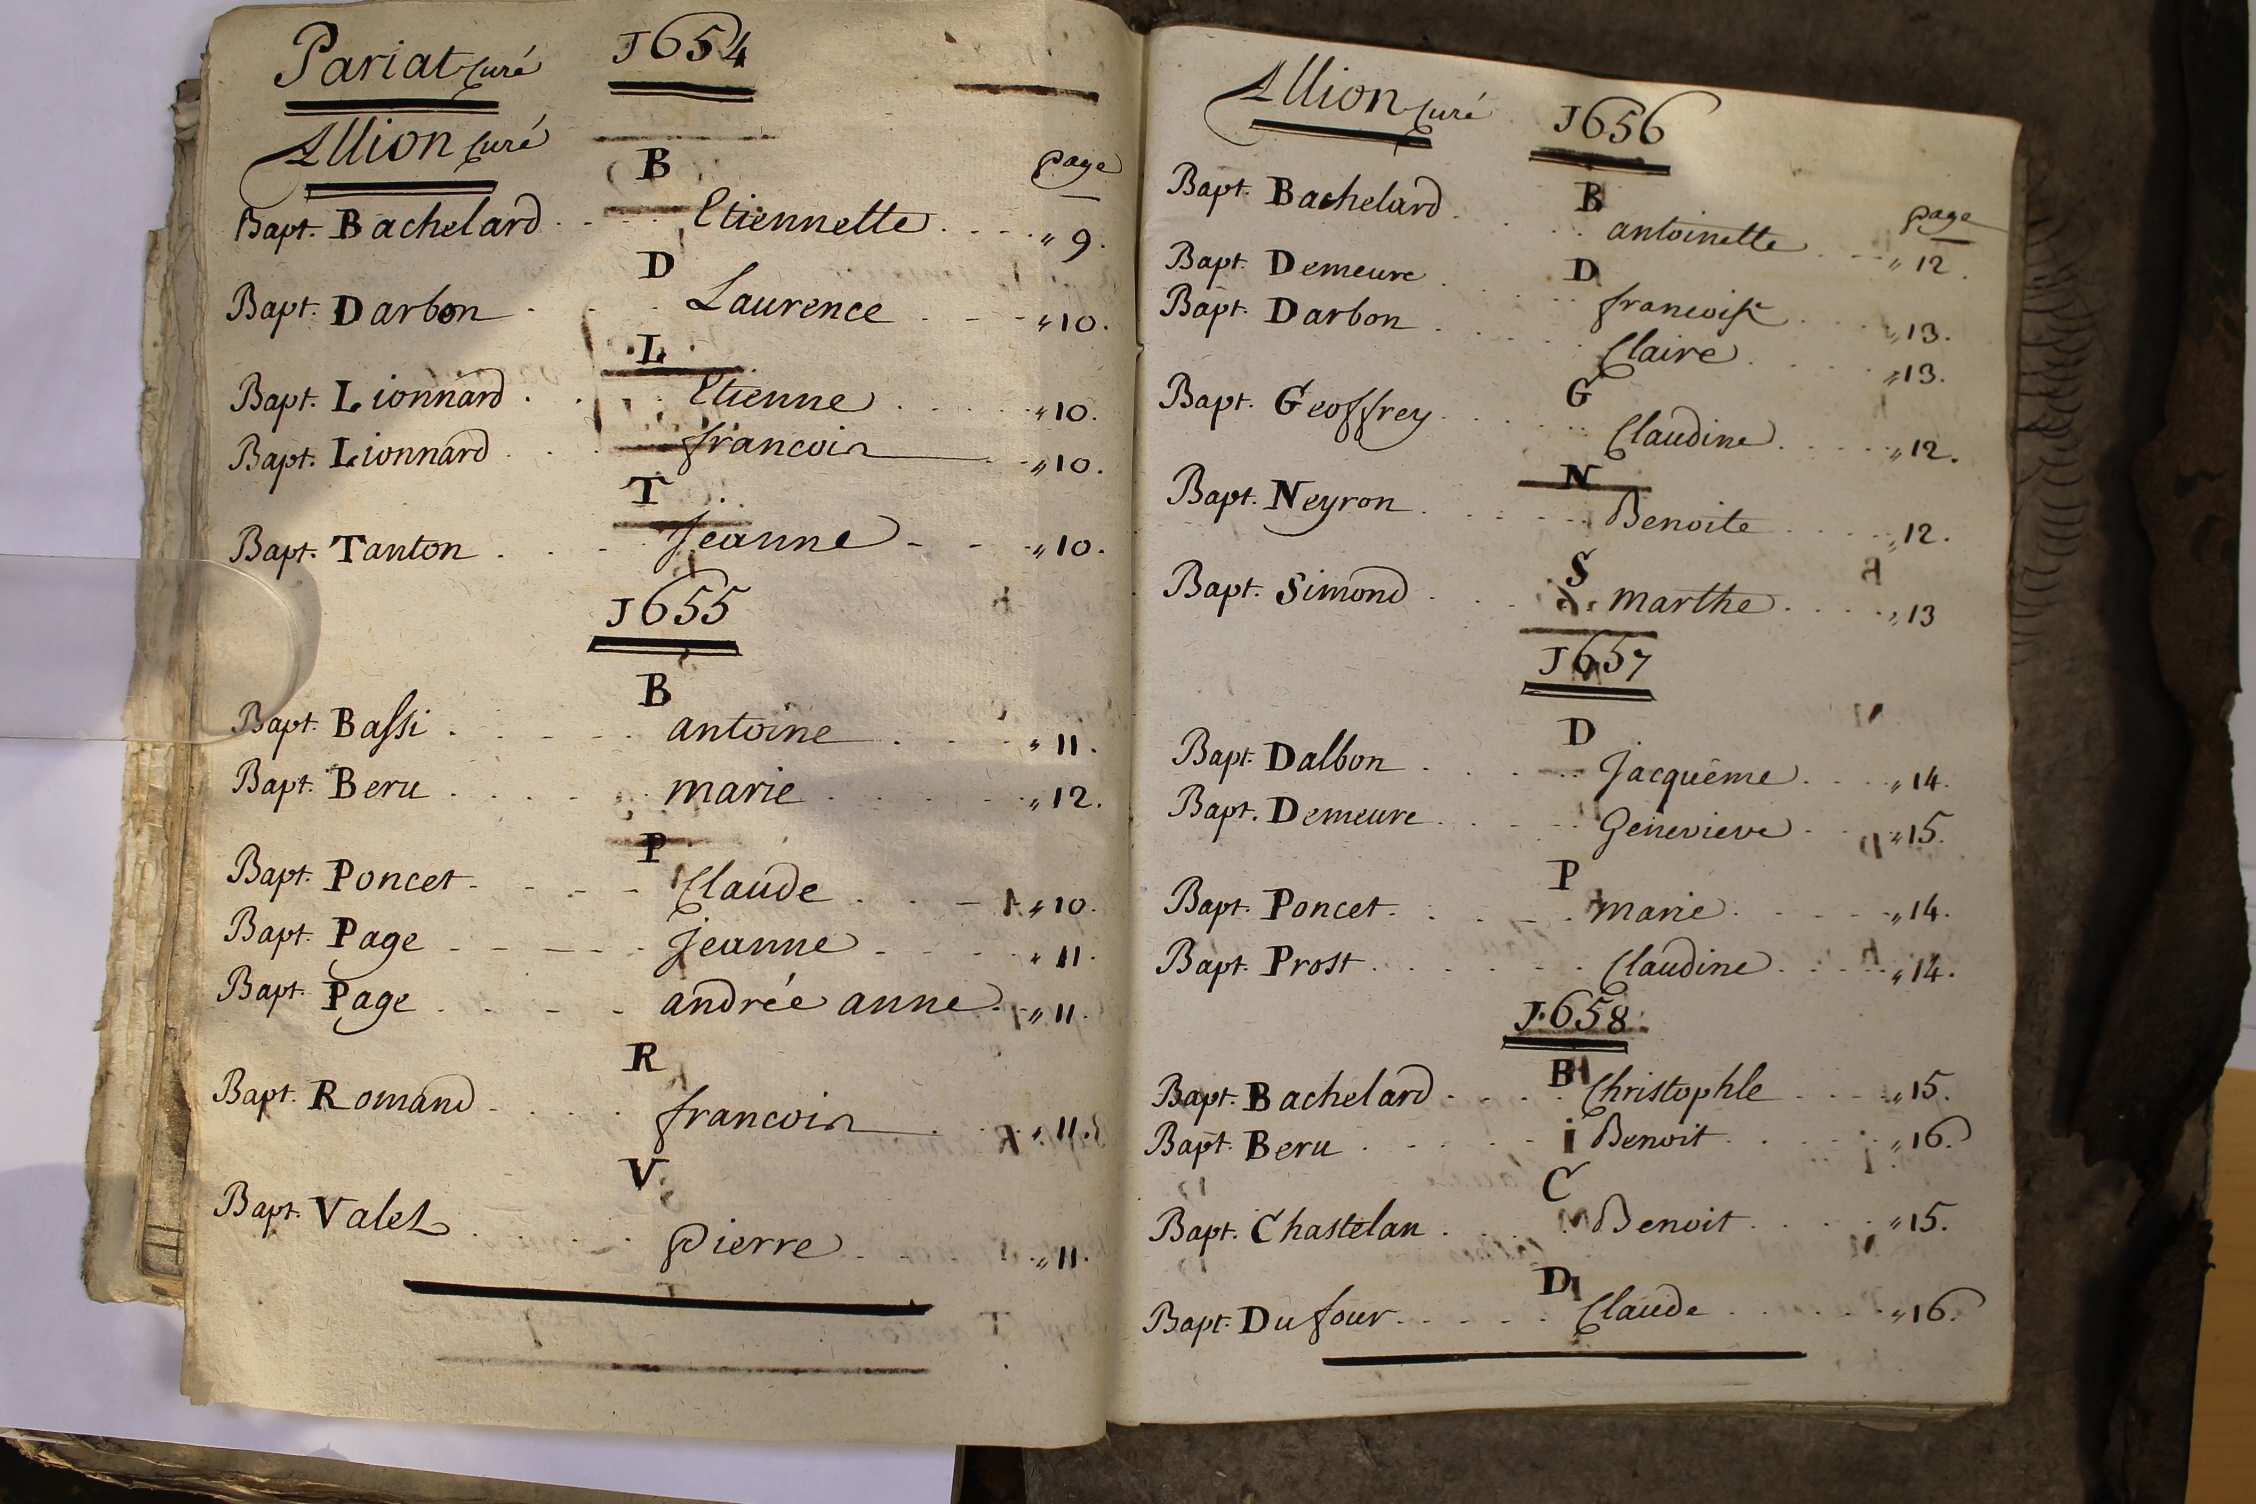 Pariat curé J654
Allion curé
B page
Bapt. Bachelard Etiennette „ 9.
D
Bapt. Darbon Laurence „ 10.
L
Bapt. Lionnard Etienne „ 10.
Bapt. Lionnard francois „ 10.
T
Bapt. Tanton Jeanne „ 10.
J655
B
Bapt. Bassi antoine „ 11.
Bapt. Beru marie „ 12.
P
Bapt. Poncet Claude „ 10.
Bapt. Page Jeanne „ 11.
Bapt. Page andrée anne „ 11.
R
Bapt. Romand francois „ 11.
V
Bapt. Valet pierre „ 11.
Allion curé J656
B page
Bapt. Bachelard antoinette „ 12.
D
Bapt. Demeure francoise „ 13.
Bapt. Darbon Claire „ 13.
G
Bapt. Geoffrey Claudine „ 12.
N
Bapt. Neyron Benoite „ 12.
S
Bapt. Simond marthe „ 13
J657
D
Bapt. Dalbon Jacquême „ 14.
Bapt. Demeure Genevieve „ 15.
P
Bapt. Poncet marie „ 14.
Bapt. Prost Claudine „ 14.
J658
B
Bapt. Bachelard Christophle „ 15.
Bapt. Beru Benoit „ 16.
C
Bapt. Chastelan Benoit „ 15.
D
Bapt. Dufour Claude „ 16.